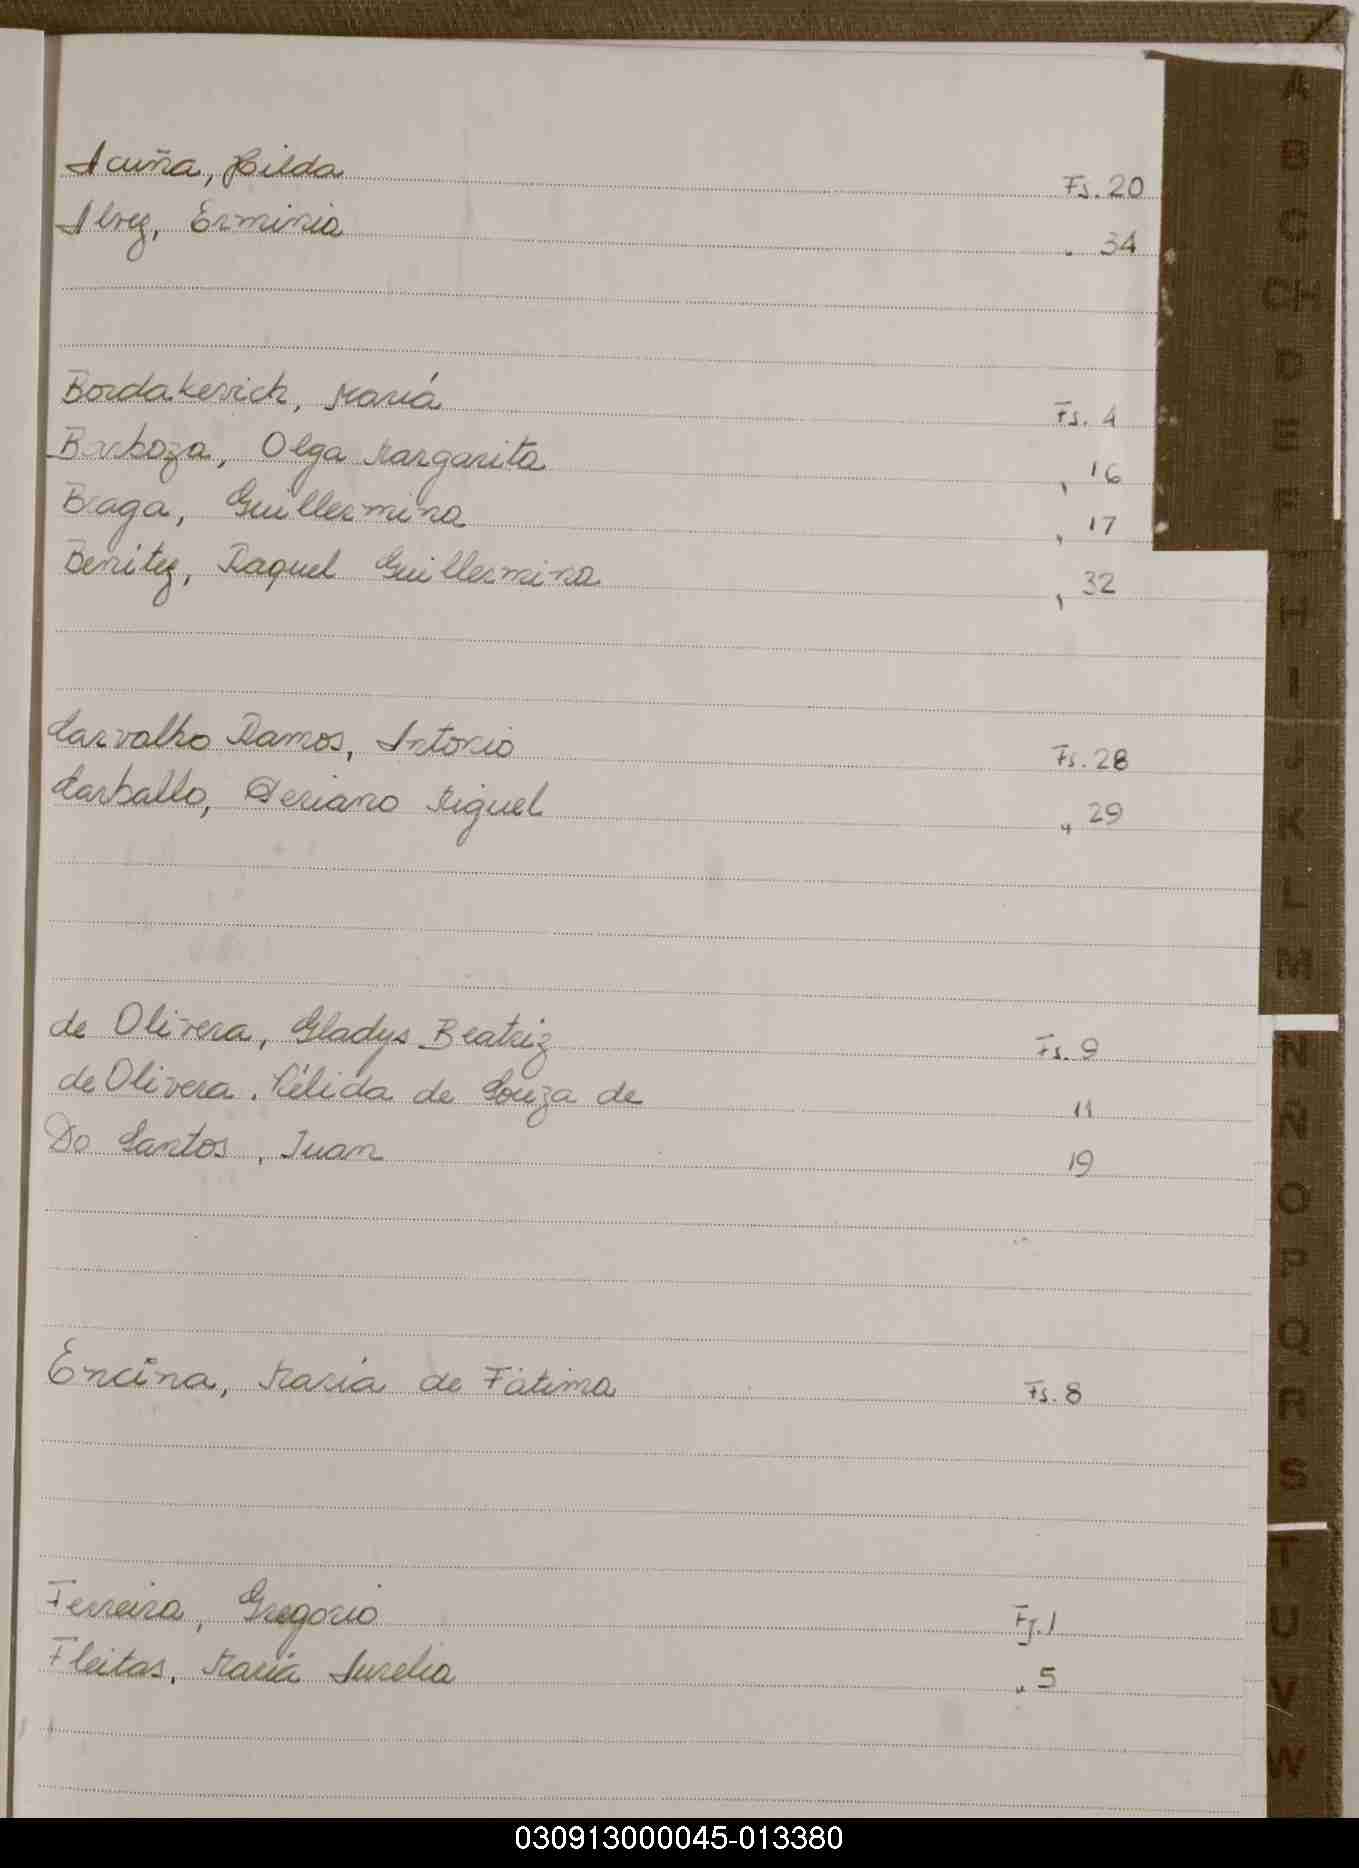 Acuña, Hilda Fs. 20
Alvez, Erminia " 34
Bordakevich, María Fs. 4
Barboza, Olga Margarita " 16
Braga, Guillermina " 17
Benitez, Raquel Guillermina " 32
Carvalho Ramos, Antonio Fs. 28
Carballo, Deriano Miguel " 29
de Olivera, Gladys Beatriz Fs. 9
de Olivera, Nélida de Souza de 11
Do Santos, Juan 19
Encina, María de Fátima Fs. 8
Ferreira, Gregorio Fj. 1
Fleitas, María Aurelia " 5
A
B
C
CH
D
E
F
H
I
J
K
L
M
N
Ñ
O
P
Q
R
S
T
U
V
W
030913000045-013380